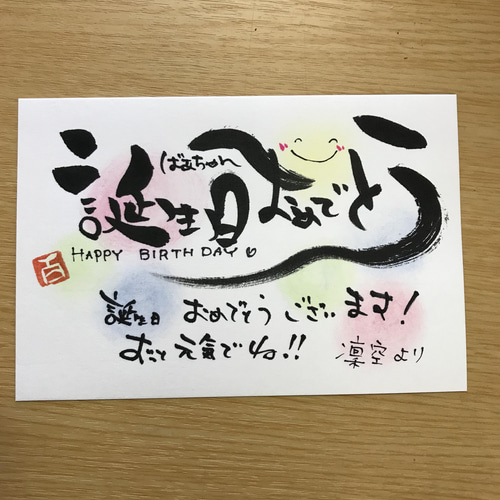 ばあちゃん
誕生日おめでとう
HAPPY BIRTHDAY
百
誕生日 おめでとうござい ます!
ずっと 元気でね!!
凜空より